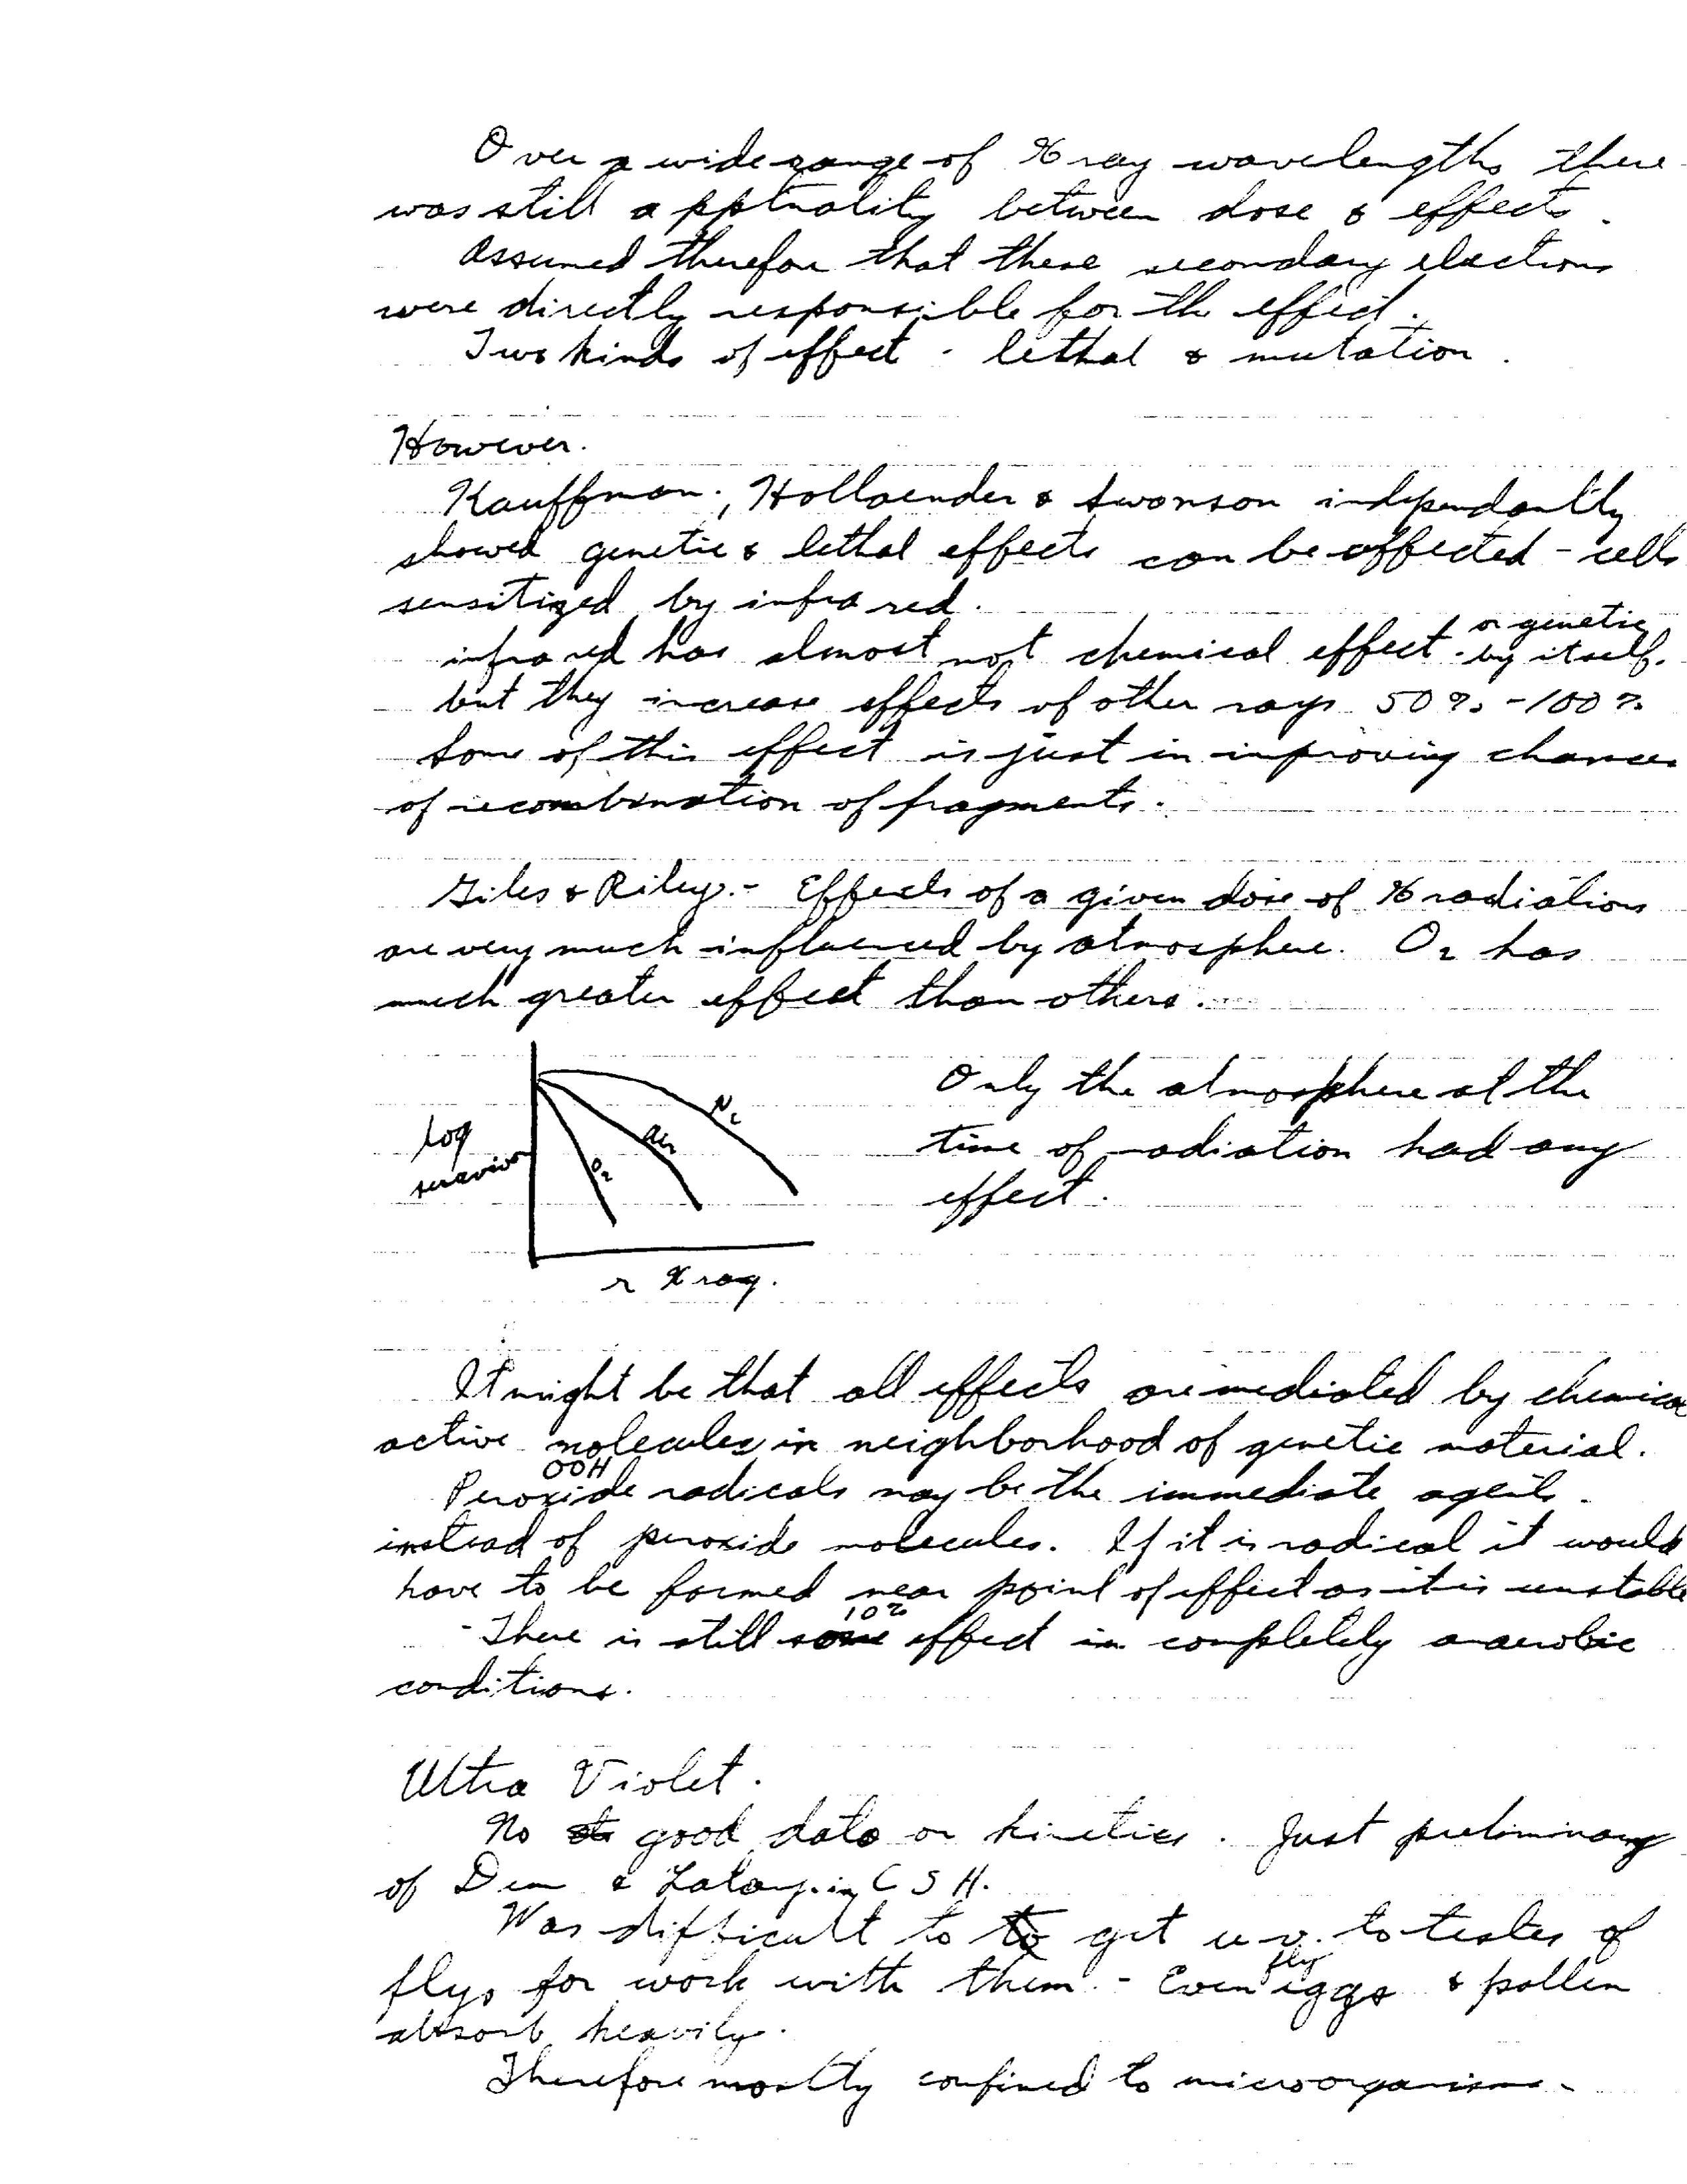 Over a wide range of X ray wavelengths there
was still a pptnality between dose & effects.
Assumed therefor that these secondary electrons
were directly responsible for the effect.
Two kinds of effect - lethal & mutation.
However.
Kauffman, Hollaender & Swanson independantly
showed genetic & lethal effects can be affected - cells
sensitized by infra red.
or genetic
infra red has almost not chemical effect - by itself.
but they increase effects of other rays 50% - 100%
Some of this effect is just in improving chances
of recombination of fragments.
Giles & Riley. - Effects of a given dose of X radiations
are very much influenced by atmosphere. O2 has
much greater effect than others.
log
survivor
N2
air
O2
r X ray.
Only the atmosphere at the
time of radiation had any
effect.
It might be that all effects are mediated by chemica
active molecules in neighborhood of genetic material.
OOH
Peroxide radicals may be the immediate agents
instead of peroxide molecules. If it is radical it would
have to be formed near point of effect as it is unstable
10%
- There is still some effect in completely anaerobic
conditions.
Ultra Violet.
No good data on kinetics. Just preliminary
of & in C S H.
Was difficult to to get u.v. to testes of
fly
flys for work with them. - Even eggs & pollen
absorb heavily.
Therefore mostly confined to microorganisms.